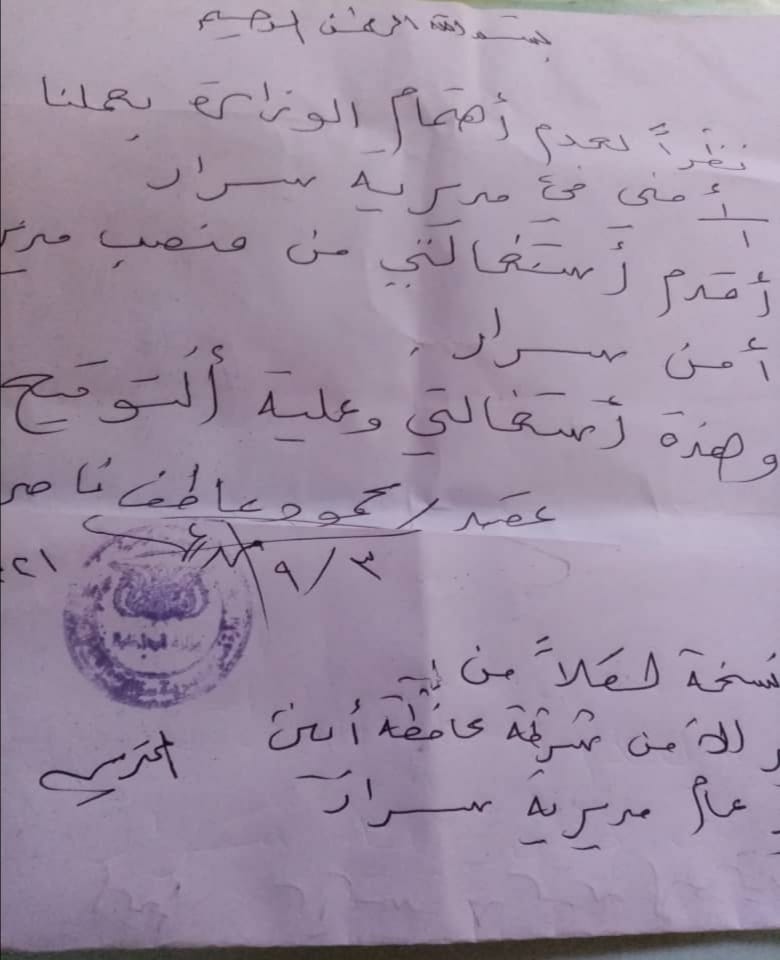 بسم الله الرحمن الرحيم
نظراً لعدم أهتمام الوزارة بعملنا
الأمني في مديرية سرار
أقدم أستقالتي من منصب مدير
أمن سرار .
وهذة أستقالتي وعلية ألتوقيع
عقيد / محمود عاطف ناصر
٩/٣
نسخة لكلاً من
للأمن شرطة محافظة أبين المحترمي
عام مديرية سرار